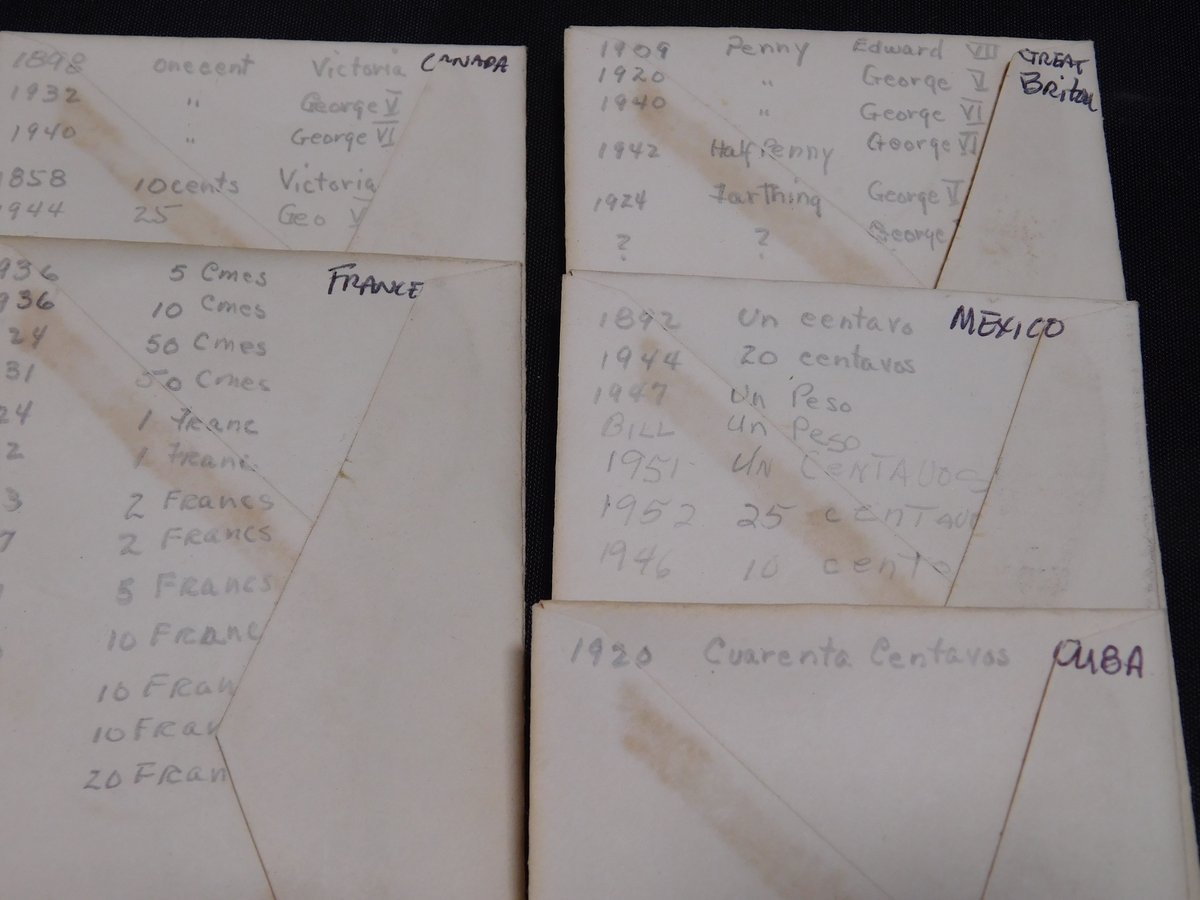 1898 one cent Victoria CANADA
1932 " George V
1940 " George VI
1858 10 cents Victoria
1944 25 Geo V
936 5 Cmes FRANCE
936 10 Cmes
24 50 Cmes
31 50 Cmes
24 1 Franc
2 1 Franc
3 2 Francs
7 2 Francs
5 Francs
10 Franc
10 Fran
10 Fran
20 Fran
1909 Penny Edward VII GREAT
1920 " George V Britain
1940 " George VI
1942 Half Penny George VI
1924 Farthing George V
? ? George
1892 Un centavo MEXICO
1944 20 centavos
1947 Un Peso
BILL Un Peso
1951 UN CENTAVOS
1952 25 CENTAV
1946 10 cent
1920 Cuarenta Centavos CUBA